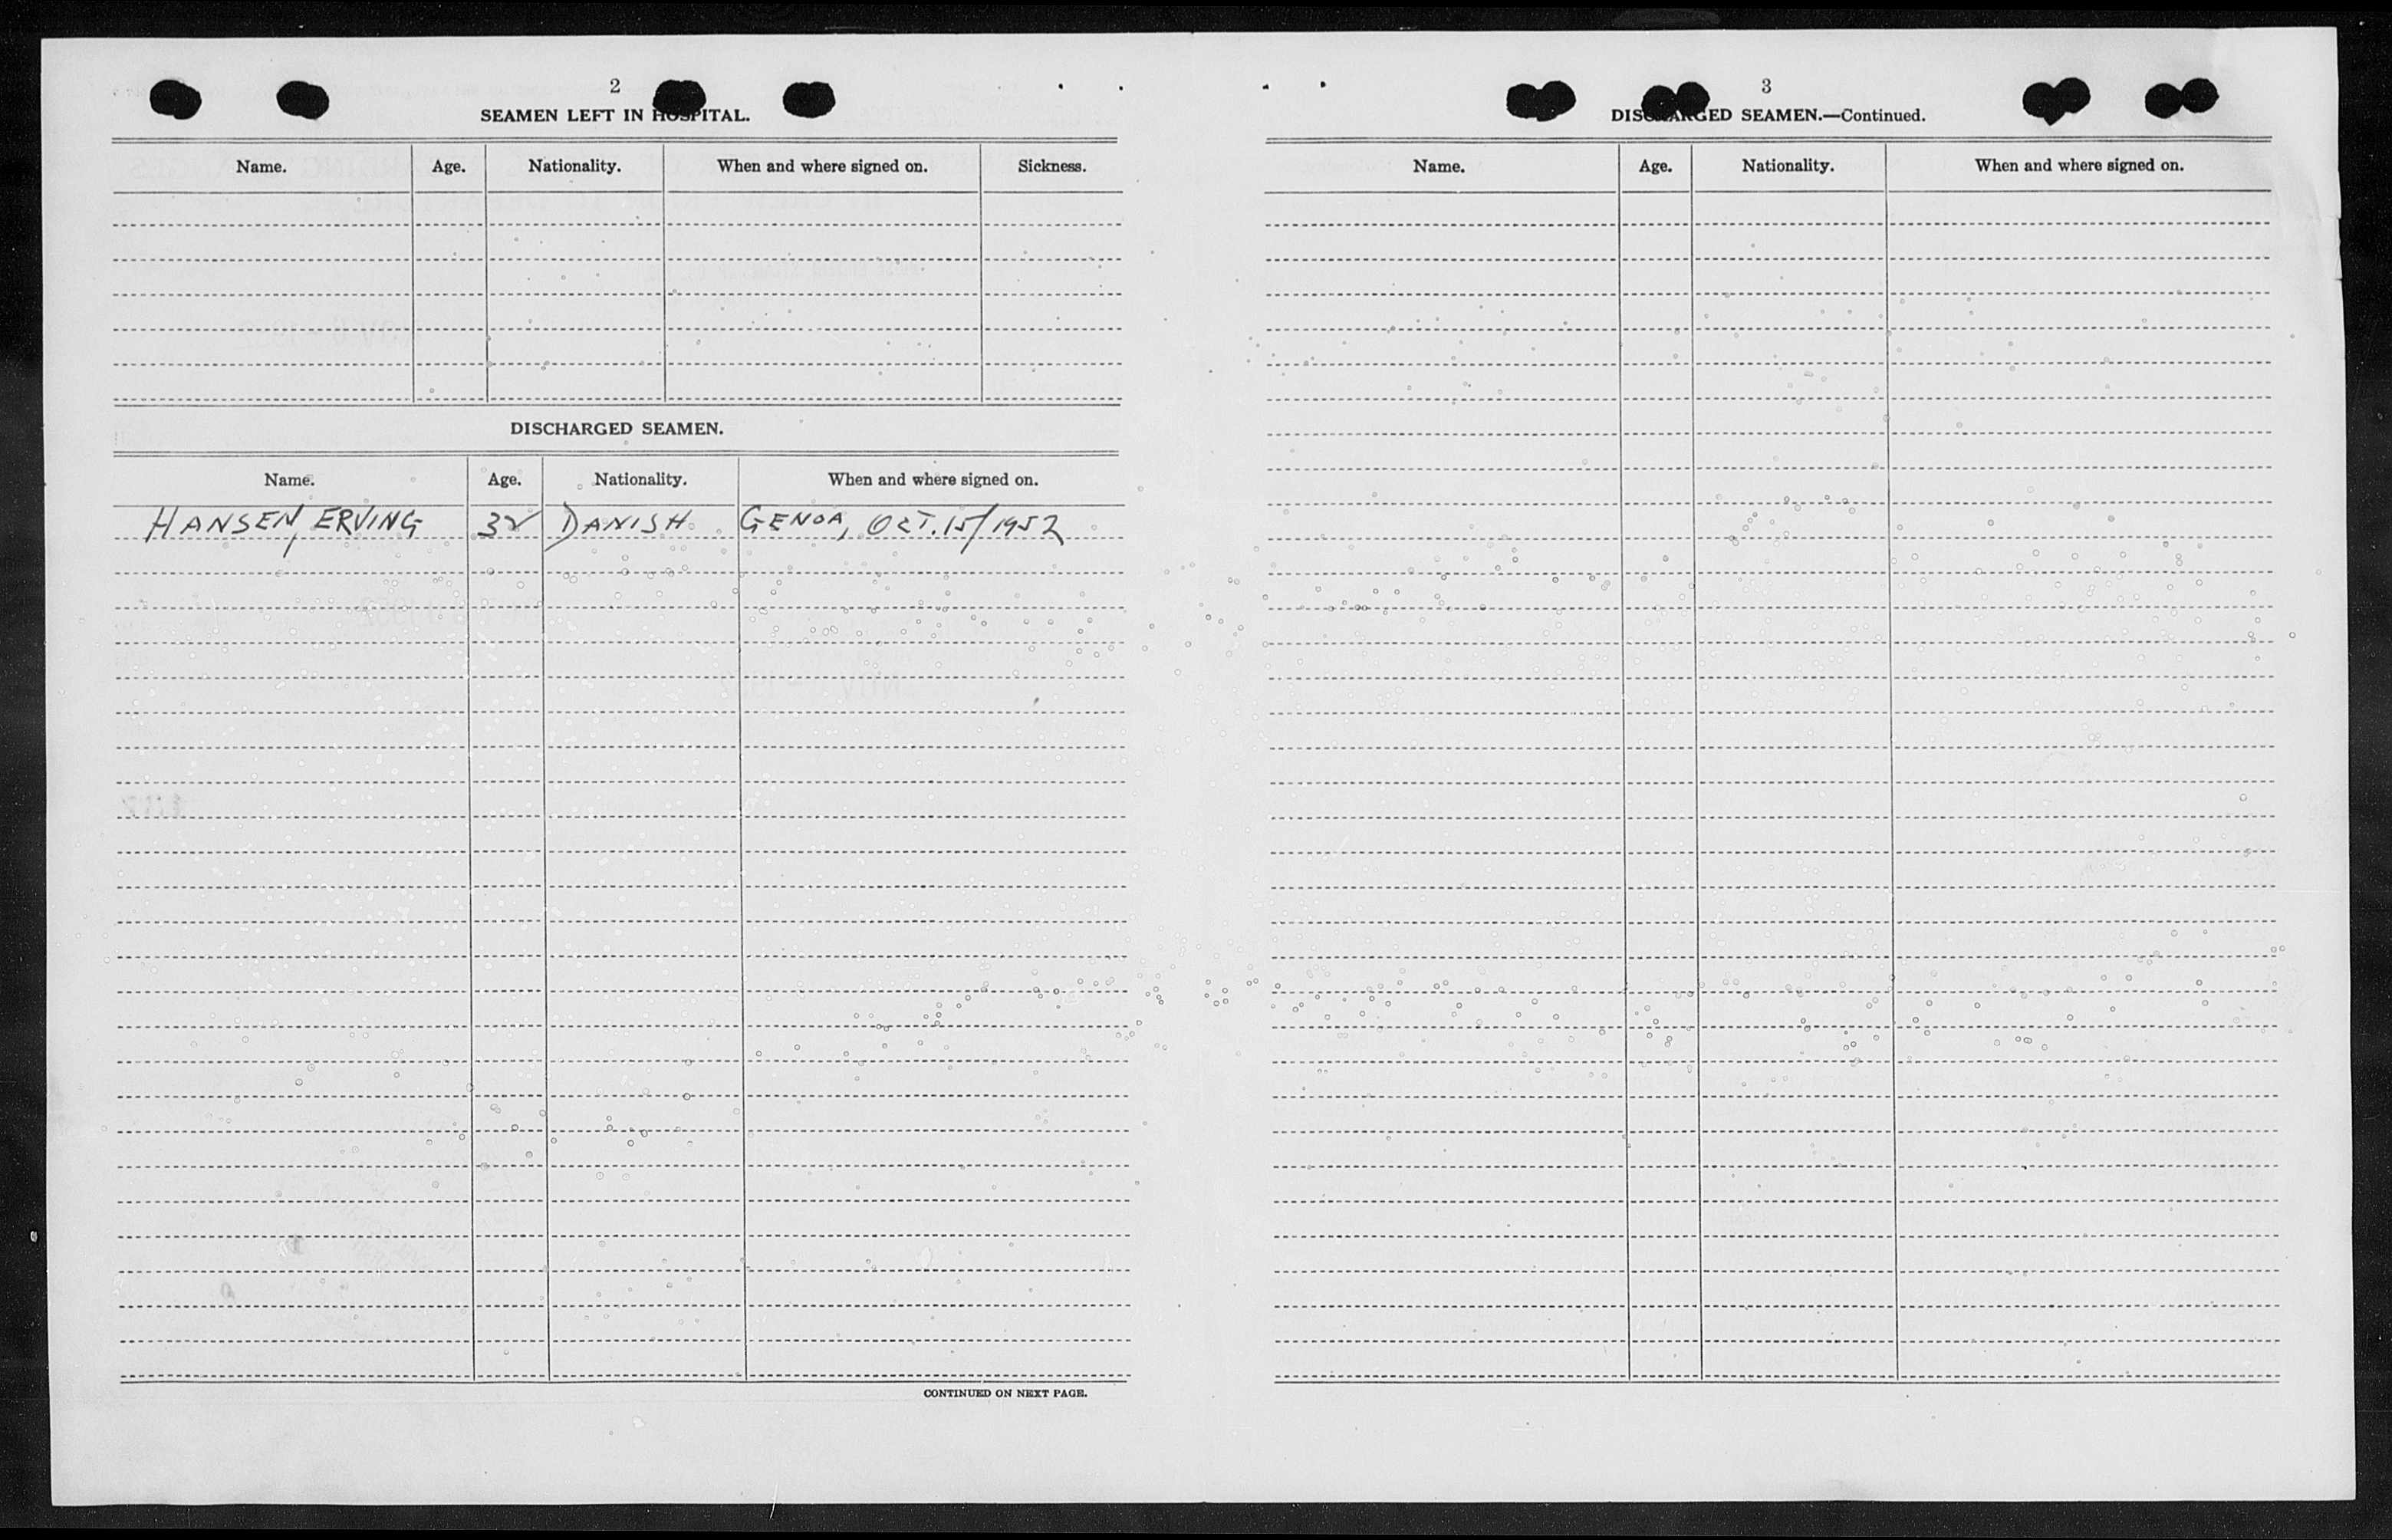 2
SEAMEN LEFT IN HOSPITAL.
Name. Age. Nationality. When and where signed on. Sickness.
DISCHARGED SEAMEN.
Name. Age. Nationality. When and where signed on.
HANSEN, ERVING 32 DANISH GENOA, OCT. 15/1952
CONTINUED ON NEXT PAGE.
3
DISCHARGED SEAMEN.—Continued.
Name. Age. Nationality. When and where signed on.